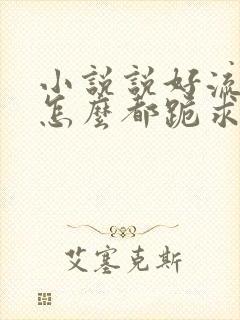 小說說好流
怎麼都跪求
艾塞克斯